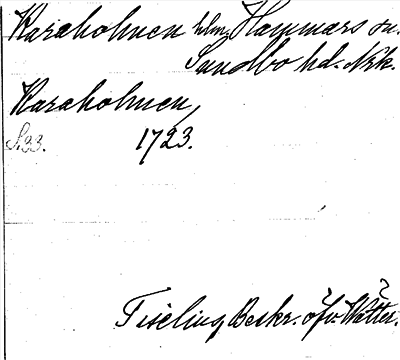 Karaholmen hlm, Hammars sn.
Sundbo hd. Nrk.
Karaholmen,
S. 23. 1723.
Tiseling Beskr. öfv. Wätter.